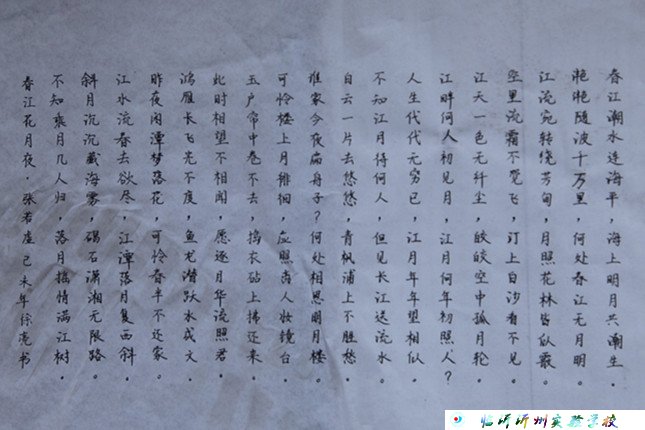 春江潮水连海平，海上明月共潮生。
滟滟随波十万里，何处春江无月明。
江流宛转绕芳甸，月照花林皆似霰。
空里流霜不觉飞，汀上白沙看不见。
江天一色无纤尘，皎皎空中孤月轮。
江畔何人初见月，江月何年初照人？
人生代代无穷已，江月年年望相似。
不知江月待何人，但见长江送流水。
白云一片去悠悠，青枫浦上不胜愁。
谁家今夜扁舟子？何处相思明月楼。
可怜楼上月徘徊，应照离人妆镜台。
玉户帘中卷不去，捣衣砧上拂还来。
此时相望不相闻，愿逐月华流照君。
鸿雁长飞光不度，鱼龙潜跃水成文。
昨夜闲潭梦落花，可怜春半不还家。
江水流春去欲尽，江潭落月复西斜。
斜月沉沉藏海雾，碣石潇湘无限路。
不知乘月几人归，落月摇情满江树。
春江花月夜·张若虚 己未年徐亮书
临沂沂州实验学校